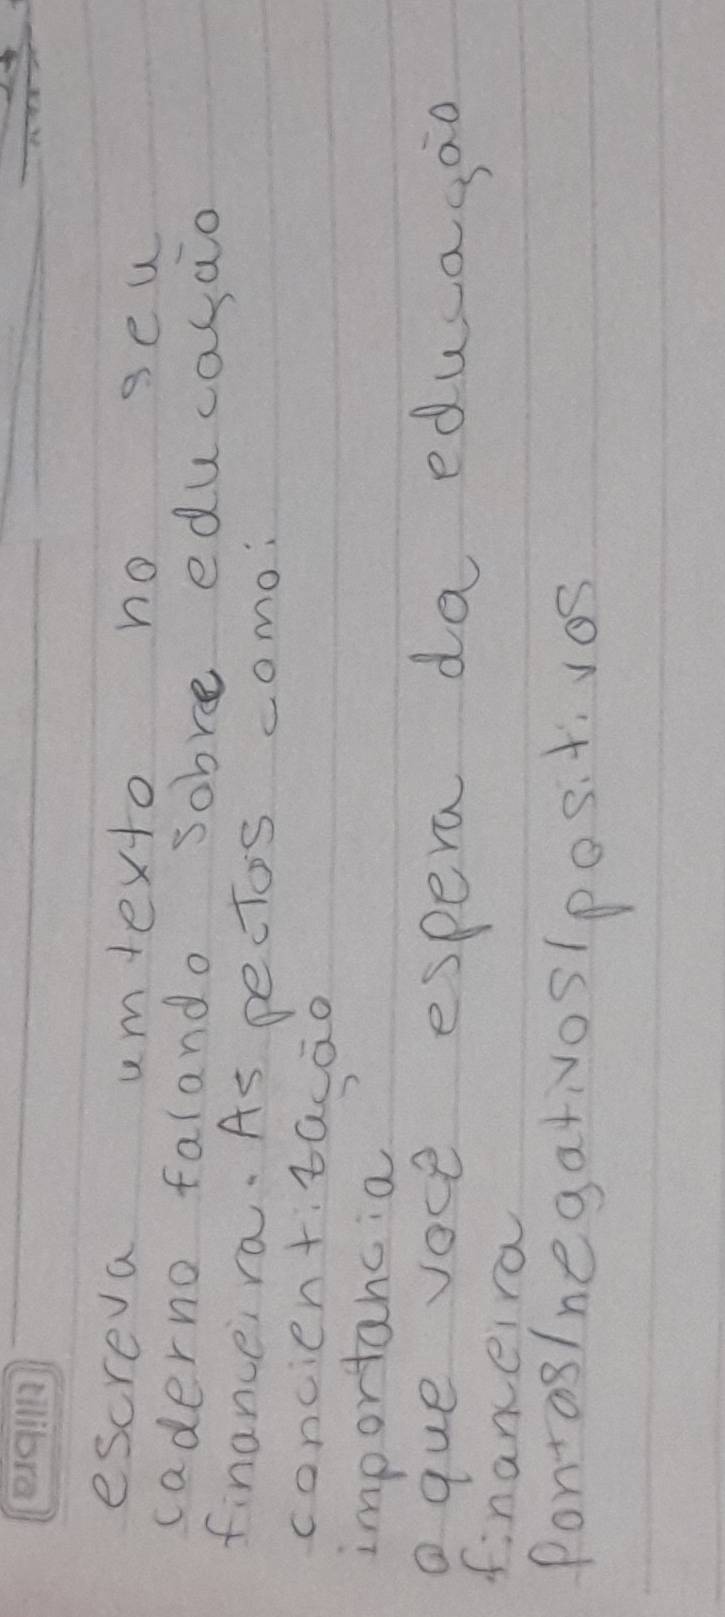 tilibra
escreva um texto no seu
caderno falando sobre educação
financeira. Aspectos como:
concientização
importancia
o que você espera da educação
financeira
pontos/negativos/positivos